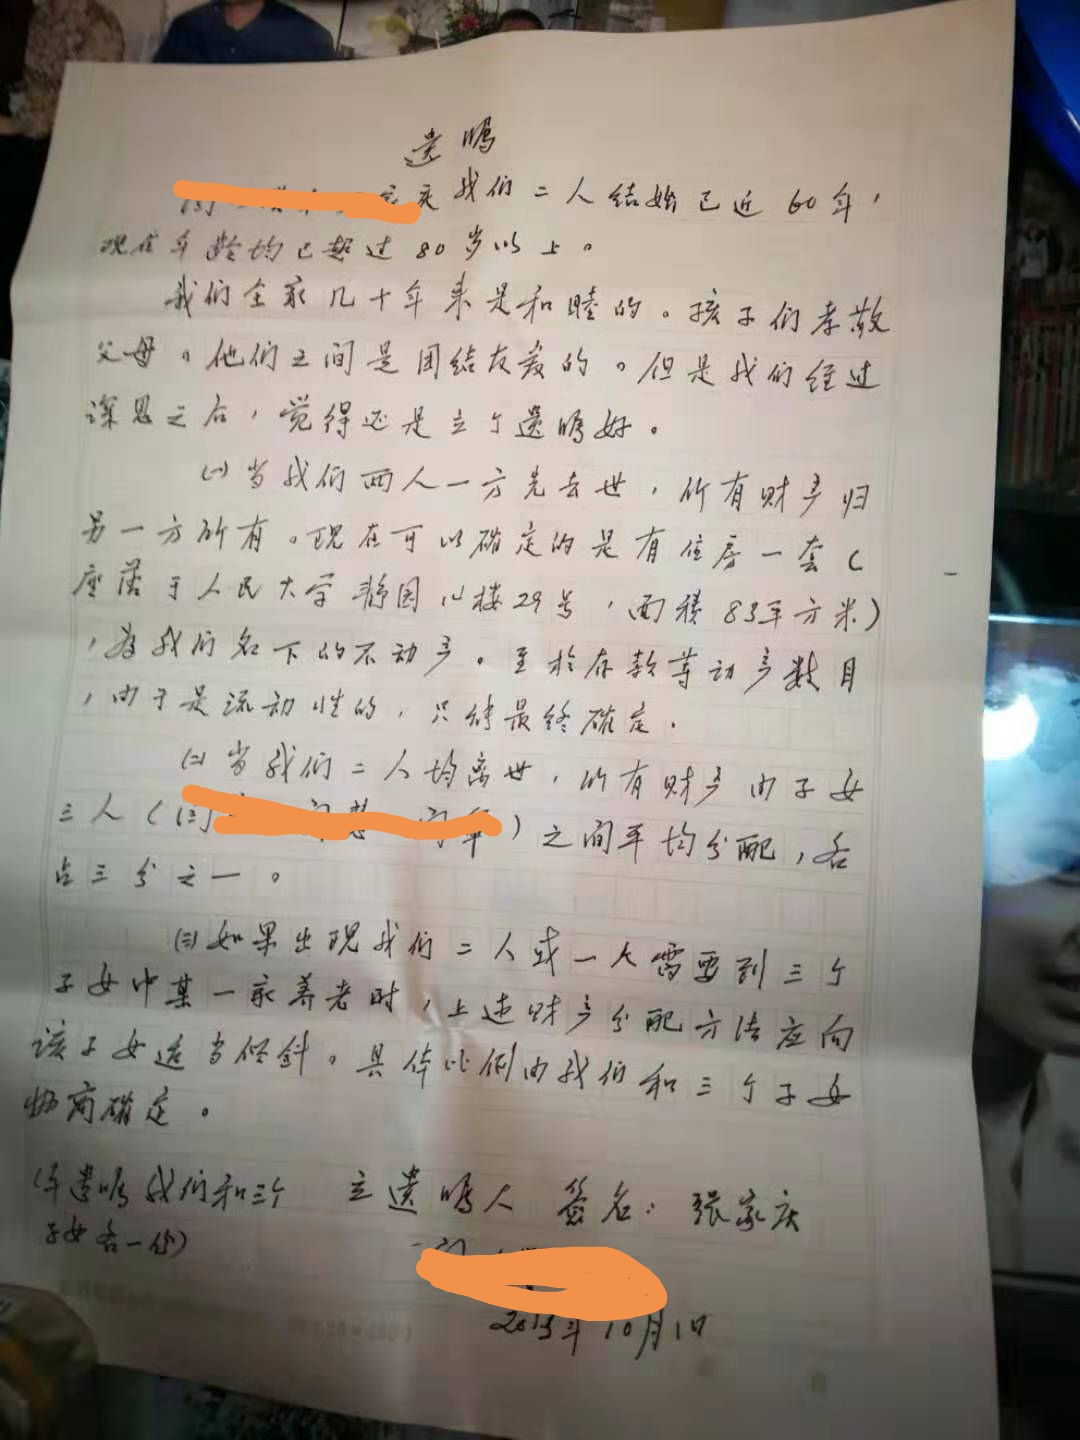 遗嘱
我们二人结婚已近60年，
现在年龄均已超过80岁以上。
我们全家几十年来是和睦的。孩子们孝敬
父母。他们之间是团结友爱的。但是我们经过
深思之后，觉得还是立个遗嘱好。
㈠当我们两人一方先去世，所有财产归
另一方所有。现在可以确定的是有住房一套（
座落于人民大学静园 楼29号，面积83平方米）
，为我们名下的不动产。至於存款等动产数目
，由于是流动性的，只待最终确定。
㈡当我们二人均离世，所有财产由子女
三人（ ）之间平均分配，各
占三分之一。
㈢如果出现我们二人或一人需要到三个
子女中某一家养老时，上述财产分配方法应向
该子女适当倾斜。具体比例由我们和三个子女
协商确定。
（本遗嘱我们和三个 立遗嘱人 签名：张家庆
子女各一份）
年10月1日